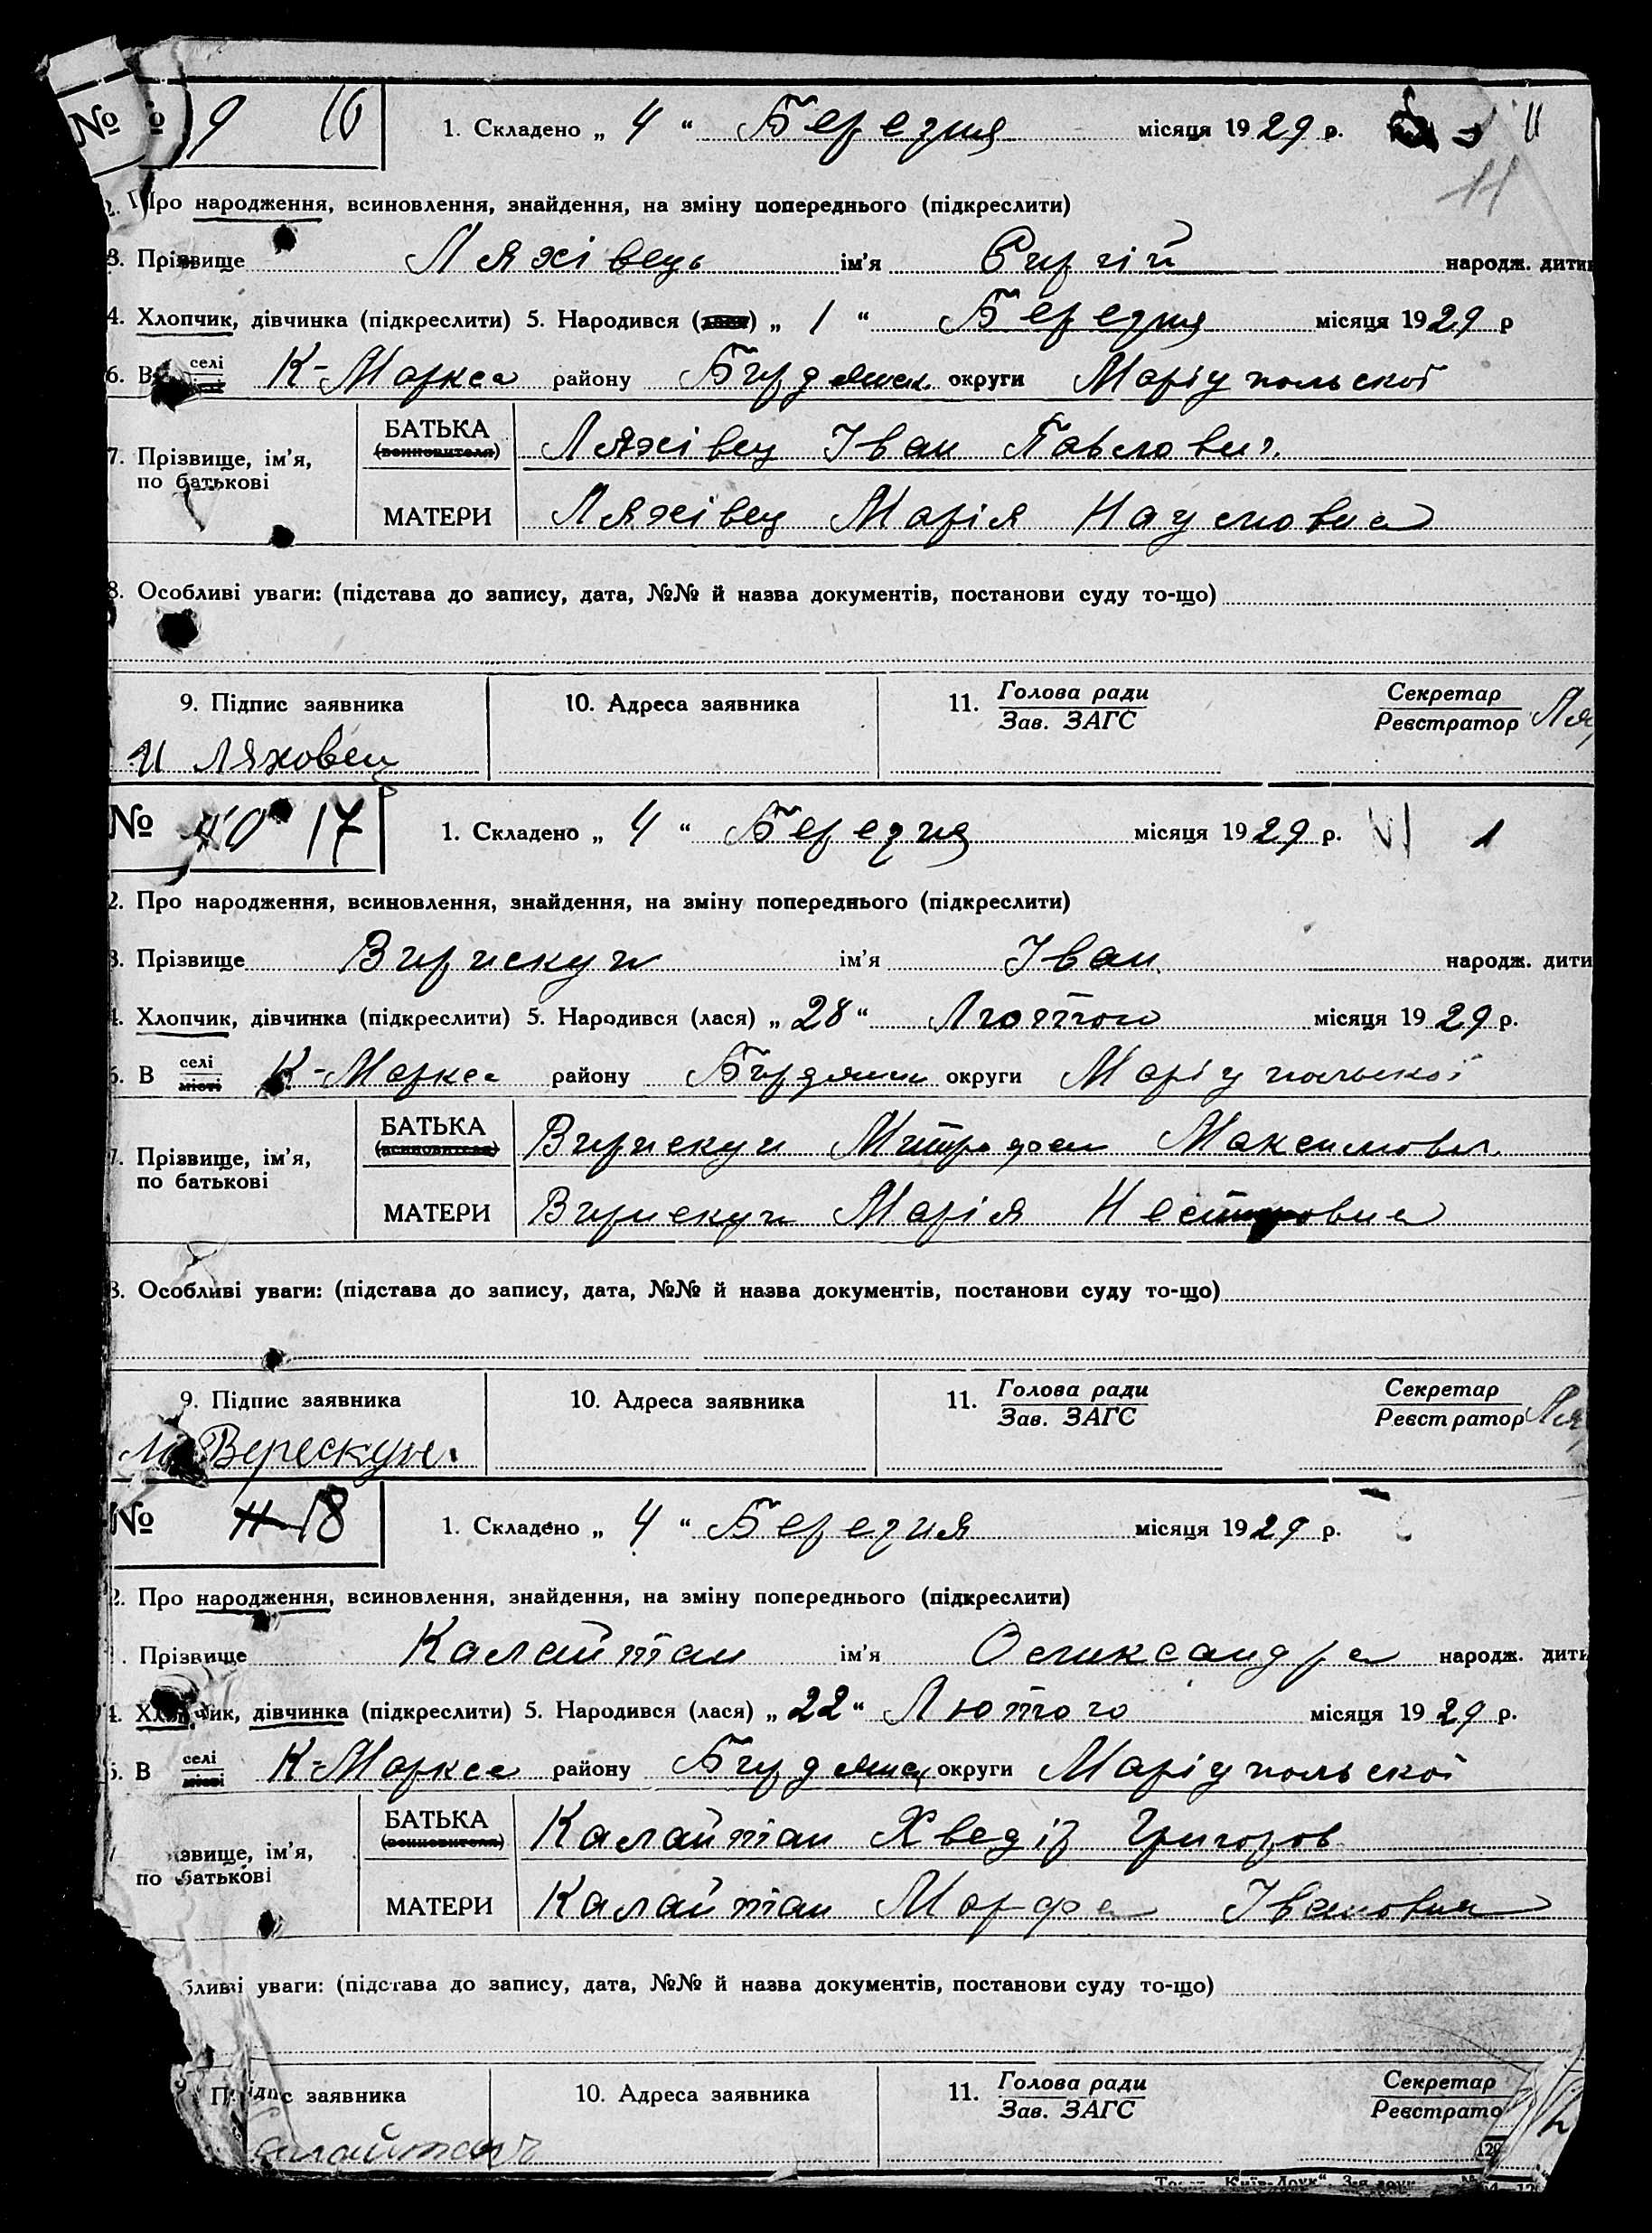 № 9 16 1. Складено „ 4 “ Березня місяця 1929 р.
11
2. Про народження, всиновлення, знайдення, на зміну попереднього (підкреслити)
3. Прізвище Ляхівець ім'я Сиргій народж. дитин
4. Хлопчик, дівчинка (підкреслити) 5. Народився „ 1 “ Березня місяця 1929 р
6. В селі К-Маркса району Бирдянськ округи Маріупольскої
БАТЬКА Ляхівец Іван Павлович.
7. Прізвище, ім'я,
по батькові
МАТЕРИ Ляхівец Марія Наумовна
8. Особливі уваги: (підстава до запису, дата, №№ й назва документів, постанови суду то-що)
9. Підпис заявника 10. Адреса заявника 11. Голова ради Секретар
Зав. ЗАГС Реєстратор Ля
И Ляховец
№ 10 17 1. Складено „ 4 “ Березня місяця 1929 р. 1
2. Про народження, всиновлення, знайдення, на зміну попереднього (підкреслити)
3. Прізвище Вирискун ім'я Іван народж. дити
4. Хлопчик, дівчинка (підкреслити) 5. Народився (лася) „ 28 “ Лютого місяця 1929 р.
6. В селі місті К-Маркса району Бирдянск округи Маріупольскої
БАТЬКА (всиновителя) Вирискун Митрофан Максимович.
7. Прізвище, ім'я,
по батькові
МАТЕРИ Вирискун Марія Несторовна
8. Особливі уваги: (підстава до запису, дата, №№ й назва документів, постанови суду то-що)
9. Підпис заявника 10. Адреса заявника 11. Голова ради Секретар
Зав. ЗАГС Реєстратор Ля
М Верескун.
№ 11 18 1. Складено „ 4 “ Березня місяця 1929 р.
2. Про народження, всиновлення, знайдення, на зміну попереднього (підкреслити)
Прізвище Калайтан ім'я Оликсандра народж. дити
4. Хлопчик, дівчинка (підкреслити) 5. Народився (лася) „ 22 “ Лютого місяця 1929 р.
6. В селі місті К-Маркса району Бирдянск округи Маріупольскої
БАТЬКА (всиновителя) Калайтан Хведір Григоров
ізвище, ім'я,
по батькові
МАТЕРИ Калайтан Марфа Івановна
бливі уваги: (підстава до запису, дата, №№ й назва документів, постанови суду то-що)
9. Підпис заявника 10. Адреса заявника 11. Голова ради Секретар
Зав. ЗАГС Реєстрато
алайтан
„Київ-Друк“